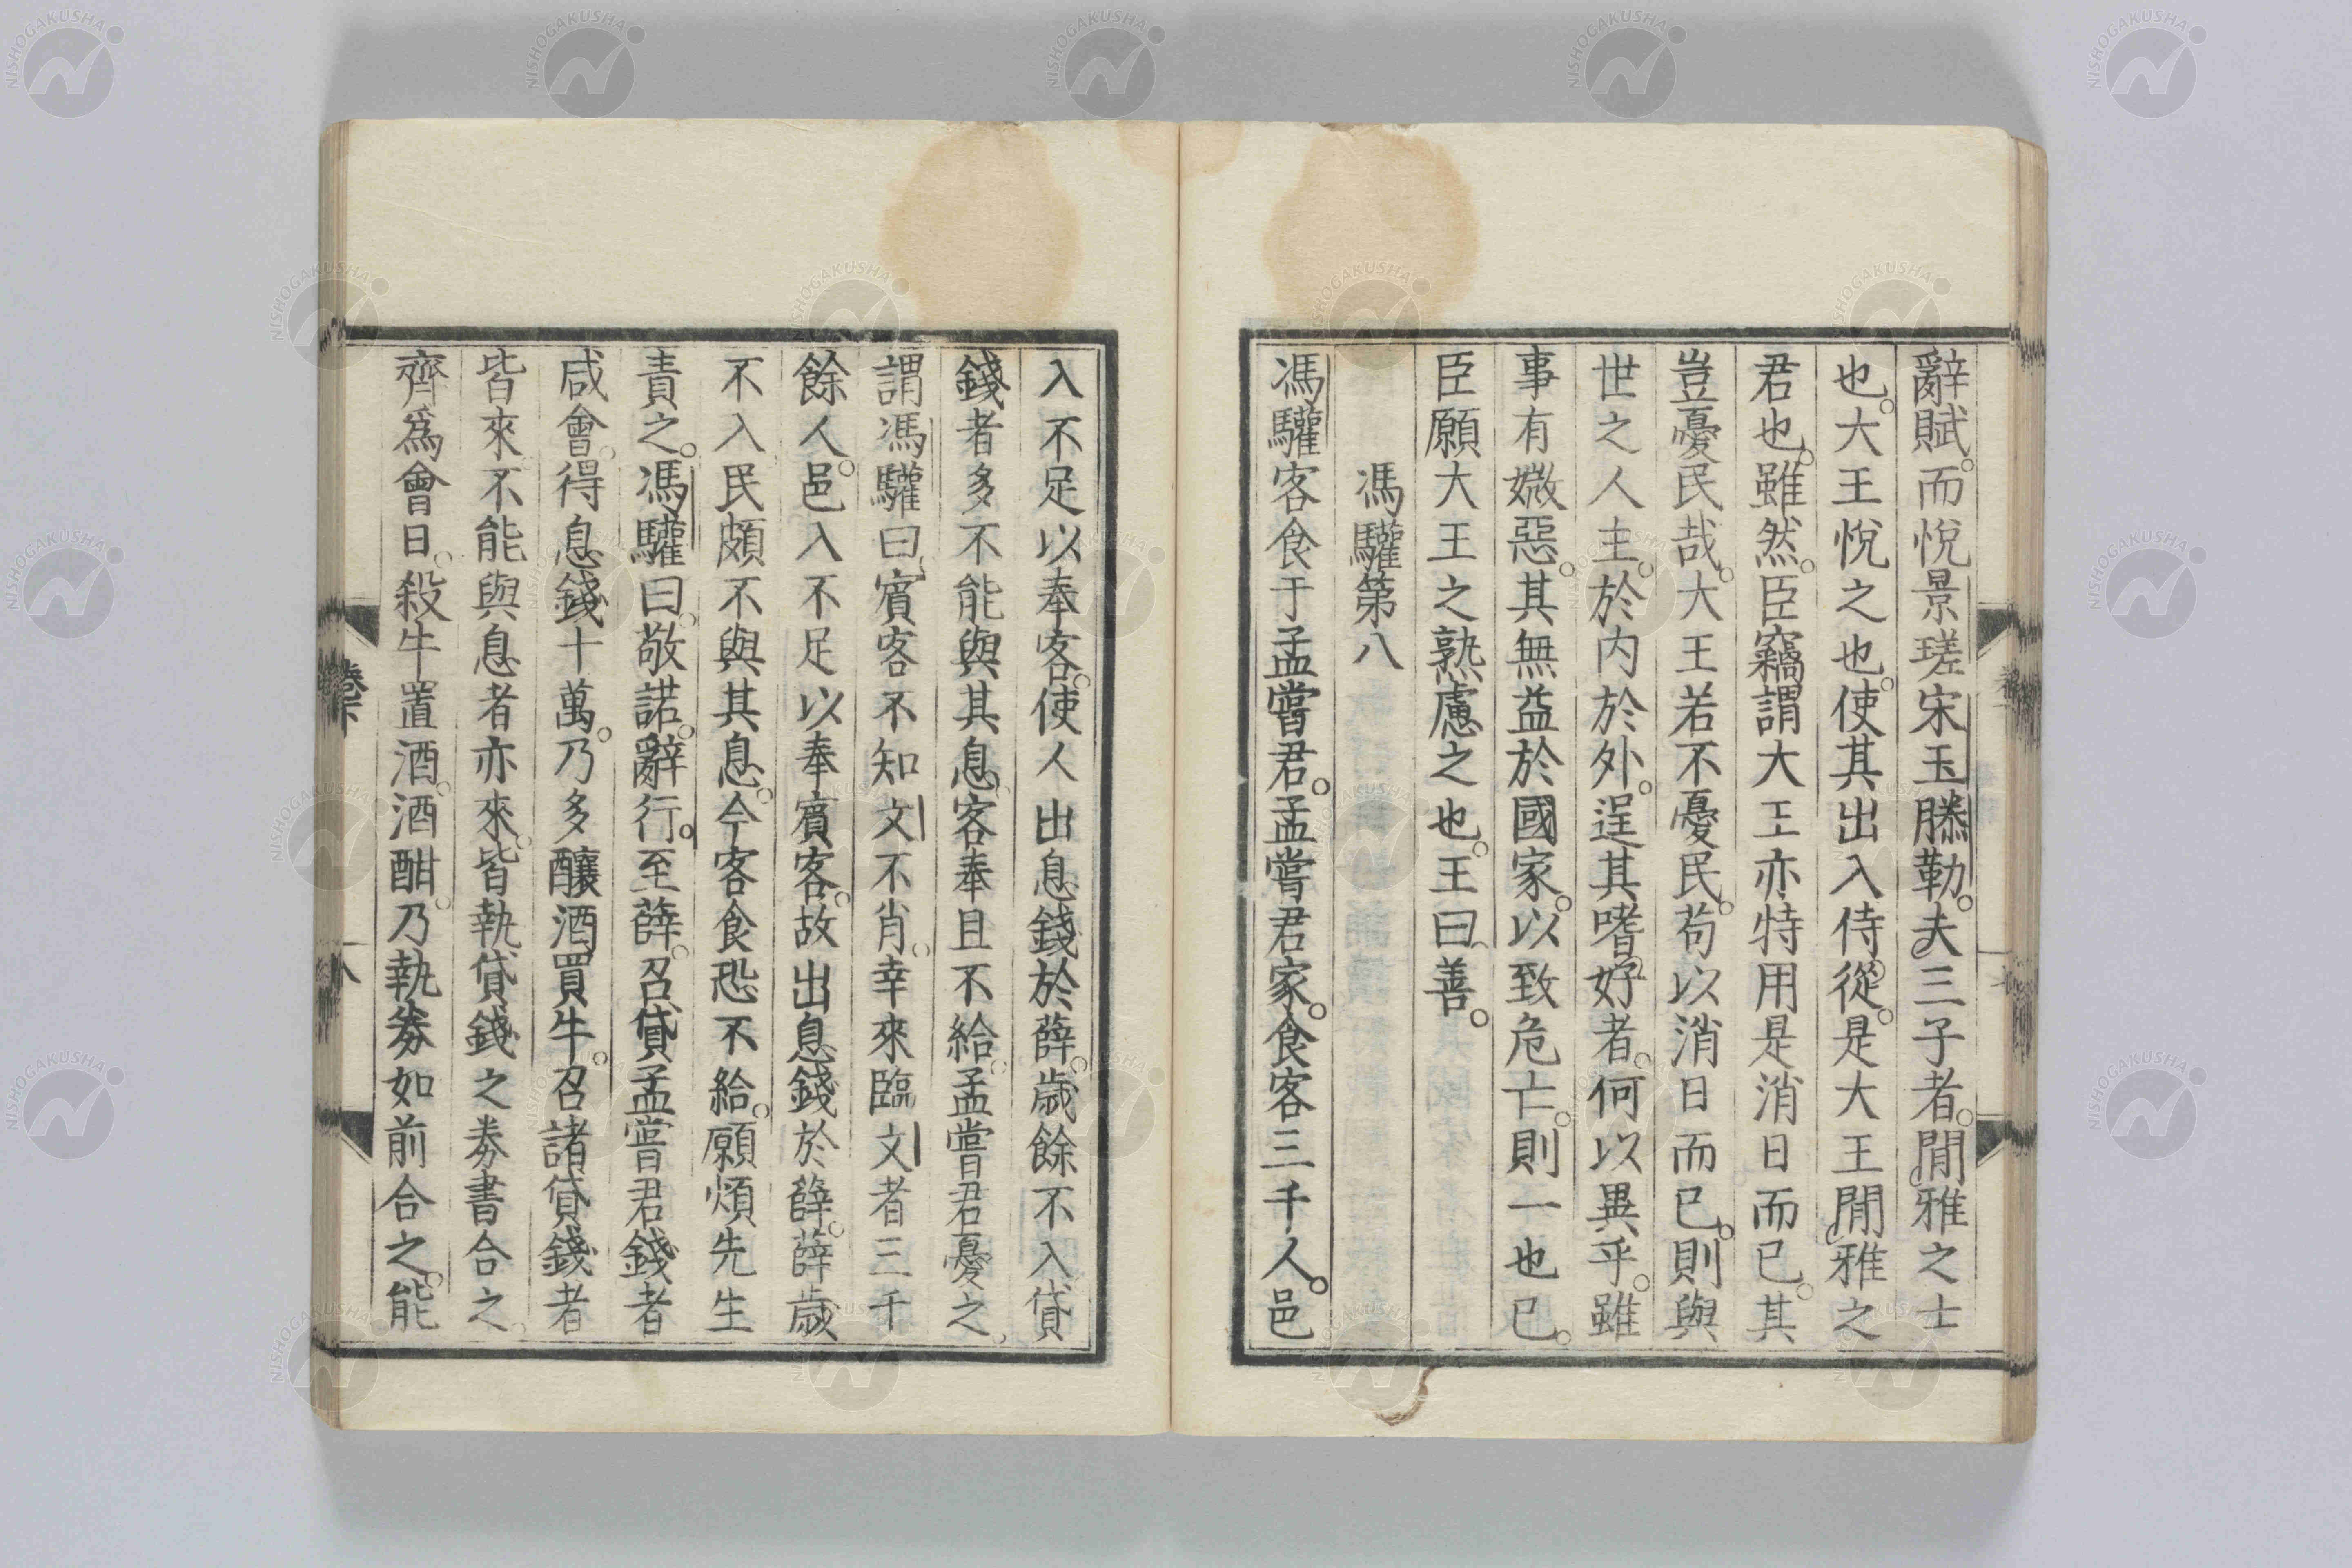 辭賦。而悅景瑳宋玉勝勒。夫三子者。閒雅之士
也。大王悅之也。使其出入侍從。是大王閒雅之
君也。雖然。臣竊謂大王亦特用是消日而已。其
豈憂民哉。大王若不憂民。苟以消日而已。則與
世之人主。於內於外。逞其嗜好者。何以異乎。雖
事有媺惡。其無益於國家。以致危亡。則一也已。
臣願大王之熟慮之也。王曰。善。
馮驩第八
馮驩客食于孟嘗君。孟嘗君家。食客三千人。邑
入不足以奉客。使人出息錢於薛。歲餘不入貸
錢者多不能與其息。客奉且不給。孟嘗君憂之。
謂馮驩曰。賓客不知文不肖。幸來臨文者三千
餘人。邑入不足以奉賓客。故出息錢於薛。薛歲
不入民頗不與其息。今客食恐不給。願煩先生
責之。馮驩曰。敬諾。辭行。至薛。召貸孟嘗君錢者
咸會。得息錢十萬。乃多釀酒買牛。召諸貸錢者
皆來不能與息者亦來。皆執貸錢之券書合之。
齊爲會日。殺牛置酒。酒酣。乃執券如前合之。能
卷下
八
NISHOGAKUSHA